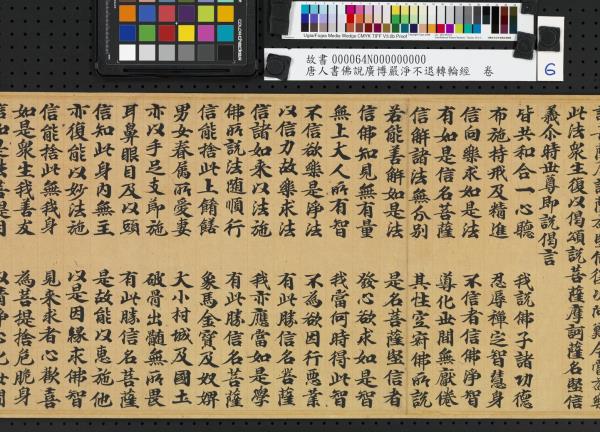 Ugra/Fogra Media Wedge CMYK TIFF V3.0b Proof
故書 000064N000000000
唐人書佛說廣博嚴淨不退轉輪經 卷
6
此法眾生復以偈頌說菩薩摩訶薩名堅信
義尒時世尊即說偈言
皆共和合一心聽 我說佛子諸功德
布施持戒及精進 忍辱禪之智慧身
信向樂求如是法 不信者信佛淨智
有如是信名菩薩 導化世間無厭倦
信解諸法無分別 其性空寂佛所說
若能善解如是法 是名菩薩堅信者
信佛知見無有量 發心欲求如是智
無上大人所有智 我當何時得此智
不信欲樂是淨法 不為欲因行惡業
以信力故樂求法 有此勝信名菩薩
信諸如來以法施 我亦應當如是學
佛所說法隨順行 有此勝信名菩薩
信能捨此上餚饍 象馬金寶及奴婢
男女眷屬所愛妻 大小村城及國土
亦以手足支節施 破骨出髓無所畏
耳鼻眼目及以頭 有此勝信名菩薩
信知此身內無主 是故能以惠施他
亦復能以妙法施 以是因緣求佛智
信能捨此無我身 見來求者心歡喜
如是眾生我善友 為菩提捨危脆身